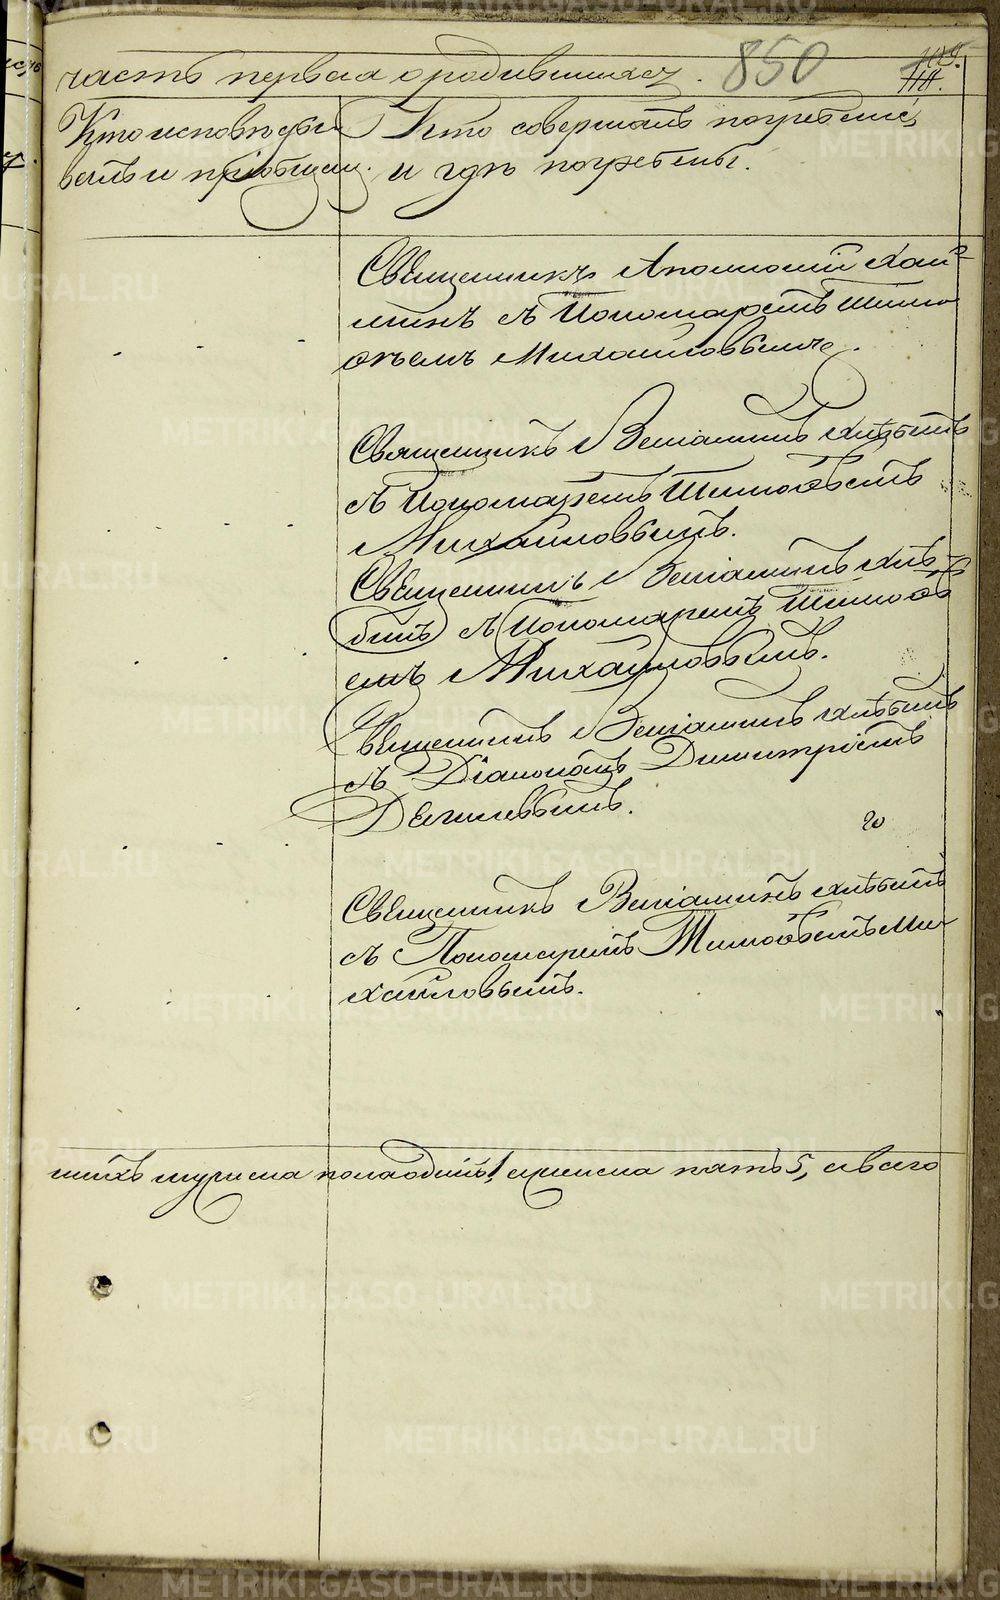 часть первая о родившихся. 850
109.
118.
Кто исповѣды-
валъ и пріобщалъ.
Кто совершалъ погребеніе,
и гдѣ погребены.
Священникъ Аполлоній
съ Пономаремъ Тимо
ѳеемъ Михайловымъ.
Священникъ Веніаминъ Хлѣбинъ
съ Пономаремъ Тимоѳеемъ
Михайловымъ.
Священникъ Веніаминъ Хлѣ-
бинъ съ Пономаремъ Тимоѳе
емъ Михайловымъ.
Священникъ Веніаминъ Хлѣбинъ
съ Діакономъ Димитріемъ
Дягилевымъ.
Священникъ Веніаминъ Хлѣбинъ
съ Пономаремъ Тимоѳеемъ Ми-
хайловымъ.
шихъ мужеска пола одинъ 1, женска пять 5, а всего
METRIKI.GASO-URAL.RU